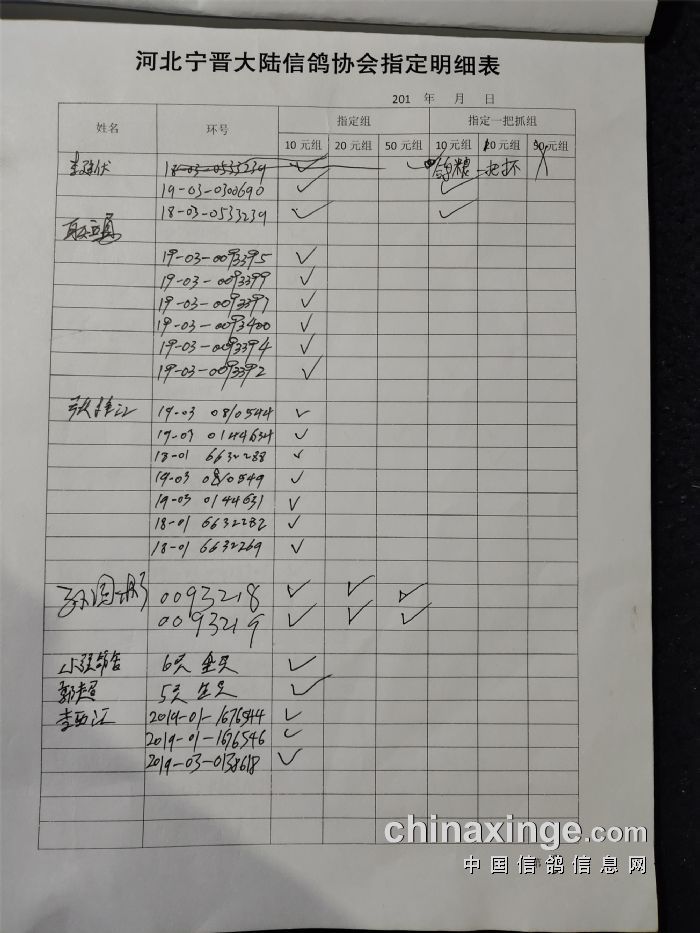 河北宁晋大陆信鸽协会指定明细表
201 年 月 日
姓名 环号 指定组 指定一把抓组
10元组 20元组 50元组 10元组 20元组 50元组
18-03-0533239 ✓ ✓ 鸽粮 一把抓
19-03-0300690 ✓ ✓
18-03-0533239 ✓ ✓
19-03-0093395 ✓
19-03-0093399 ✓
19-03-0093397 ✓
19-03-0093400 ✓
19-03-0093394 ✓
19-03-0093392 ✓
19-03 0810544 ✓
19-03 0144634 ✓
18-01 6632288 ✓
19-03 0810549 ✓
19-03 0144631 ✓
18-01 6632282 ✓
18-01 6632269 ✓
0093218 ✓ ✓ ✓
0093219 ✓ ✓ ✓
6只 全只 ✓
郭超 5只 全只 ✓
李 江 2019-01-1676544 ✓
2019-01-1676546 ✓
2019-03-0138618 ✓
chinaxinge.com
第
中国信鸽信息网